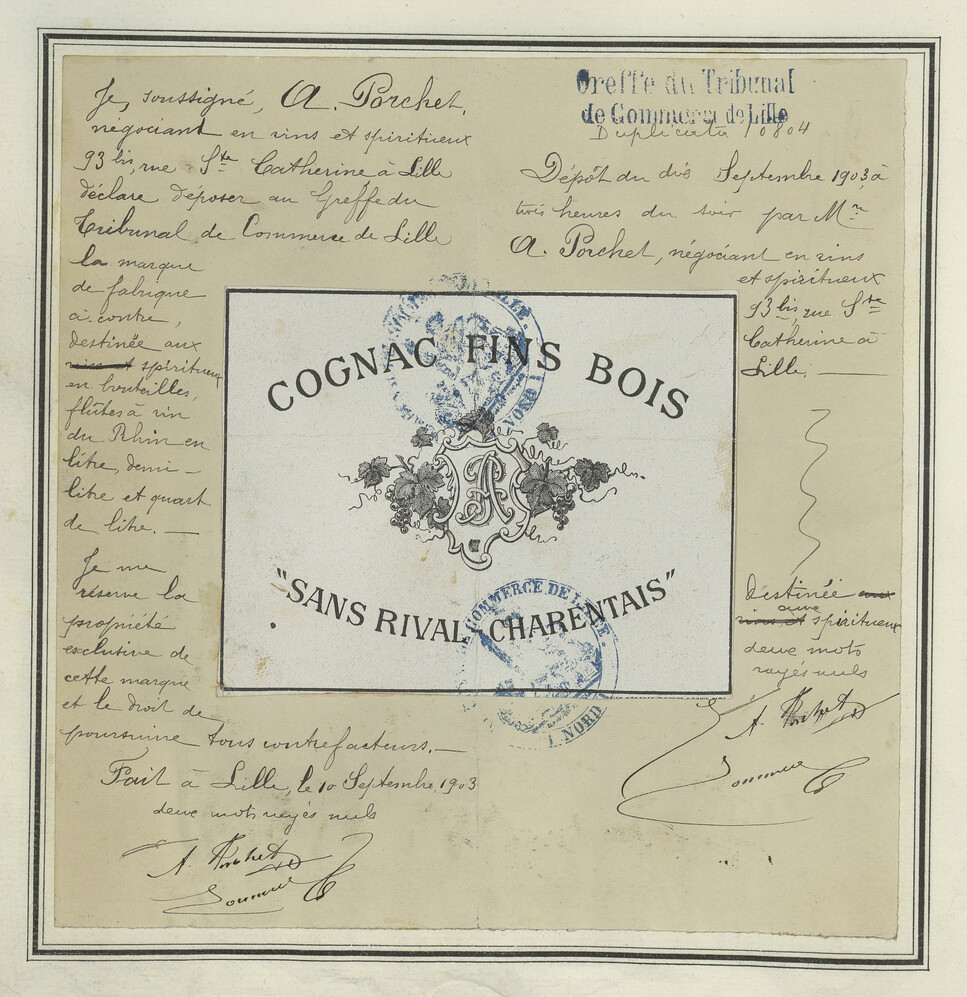 Je, soussigné, A. Porchet,
négociant en vins et spiritueux
93 bis, rue Ste Catherine à Lille
déclare déposer au Greffe du
Tribunal de Commerce de Lille
la marque
de fabrique
ci-contre,
destinée aux
vins et spiritueux
en bouteilles,
flûtes à vin
du Rhin en
litre, demi-
litre et quart
de litre. —
Je me
réserve la
propriété
exclusive de
cette marque
et le droit de
poursuivre tous contrefacteurs. —
Fait à Lille, le 10 Septembre 1903
deux mots rayés nuls
A. Porchet
COGNAC FINS BOIS
"SANS RIVAL CHARENTAIS"
COMMERCE DE LILLE.
(NORD)
Greffe du Tribunal
de Commerce de Lille
Duplicata 10804
Dépôt du dix Septembre 1903, à
trois heures du soir par Mr
A. Porchet, négociant en vins
et spiritueux
93 bis, rue Ste
Catherine à
Lille. —
Destinée aux
aux
vins et spiritueux
deux mots
rayés nuls
A. Porchet